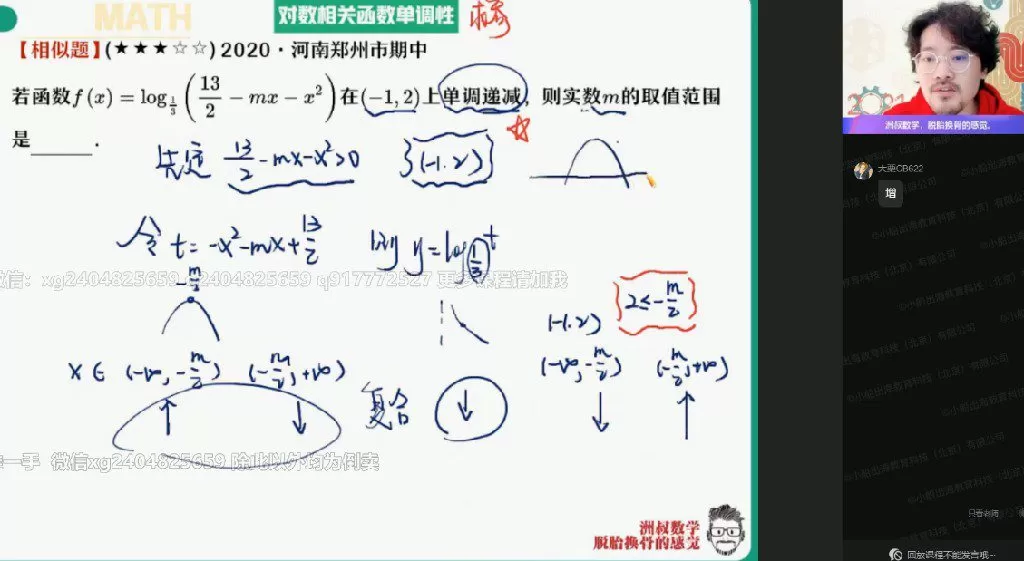 MATH
对数相关函数单调性
【相似题】(★★★☆☆) 2020·河南郑州市期中
若函数 f(x) = log_{1/3}(13/2 − mx − x²) 在(−1, 2)上单调递减，则实数 m 的取值范围
是______.
13/2 - mx - x² > 0 (-1.2)
令 t = -x² - mx + 13/2 则 y = log_{1/3} t
微信：xg2404825659 q2404825659 q917772527 更多课程请加我
-m/2
2 ≤ -m/2
(-1.2)
x ∈ (-∞, -m/2) (-m/2, +∞) (-∞, -m/2) (-m/2, +∞)
↑ ↓ 复合 ↓ ↓ ↑
一手 微信xg2404825659 除此以外均为倒卖
洲叔数学
脱胎换骨的感觉
洲叔数学，脱胎换骨的感觉。
大栗CB622
增
只看老师
回放课程不能发言哦~